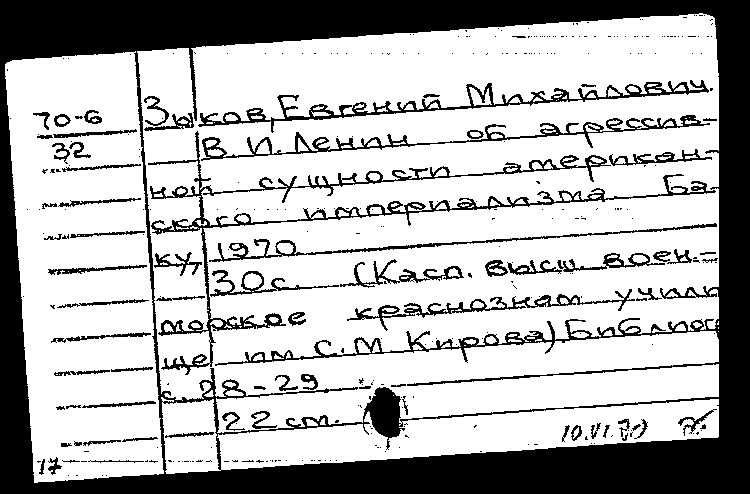 70-6 Зыков, Евгений Михайлович.
32 В. И. Ленин об агрессив-
ной сущности американ-
ского империализма. Ба-
ку, 1970
30с. (Касп. высш. воен.-
морское краснознам училищ
ще им. С. М. Кирова). Библиогр
с. 28-29.
22 см.
10.VI.70
17